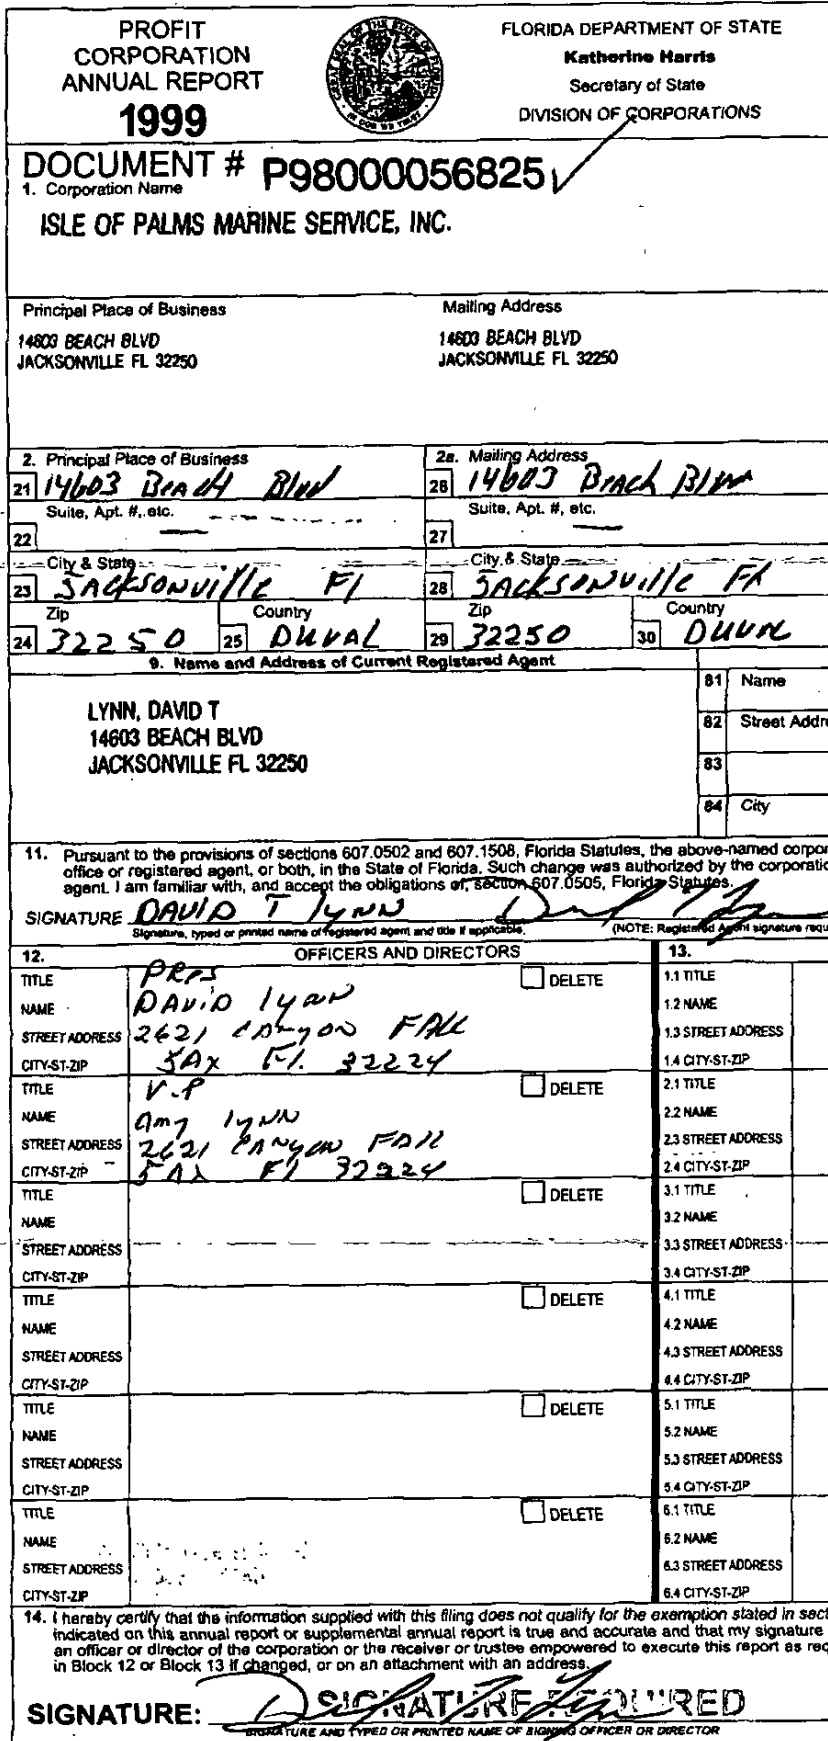 PROFIT
CORPORATION
ANNUAL REPORT
1999
GREAT SEAL OF THE STATE OF FLORIDA
IN GOD WE TRUST
FLORIDA DEPARTMENT OF STATE
Katherine Harris
Secretary of State
DIVISION OF CORPORATIONS
DOCUMENT # P98000056825
1. Corporation Name
ISLE OF PALMS MARINE SERVICE, INC.
Principal Place of Business
14603 BEACH BLVD
JACKSONVILLE FL 32250
Mailing Address
14603 BEACH BLVD
JACKSONVILLE FL 32250
2. Principal Place of Business
21 14603 Beach Blvd
2a. Mailing Address
26 14603 Beach Blvd
Suite, Apt. #, etc.
22
Suite, Apt. #, etc.
27
City & State
23 JACKSONVille Fl
City & State
28 JACKSONVille FL
Zip
24 32250
Country
25 DUVAL
Zip
29 32250
Country
30 DUVAL
9. Name and Address of Current Registered Agent
LYNN, DAVID T
14603 BEACH BLVD
JACKSONVILLE FL 32250
81 Name
82 Street Addre
83
84 City
11. Pursuant to the provisions of sections 607.0502 and 607.1508, Florida Statutes, the above-named corpor
office or registered agent, or both, in the State of Florida. Such change was authorized by the corporatio
agent. I am familiar with, and accept the obligations of, section 607.0505, Florida Statutes.
SIGNATURE DAVID T lyNN
Signature, typed or printed name of registered agent and title if applicable.
(NOTE: Registered Agent signature requ
12. OFFICERS AND DIRECTORS
13.
TITLE Pres DELETE
NAME DAViD lynn
STREET ADDRESS 2621 CANyON FALL
CITY-ST-ZIP JAx Fl. 32224
1.1 TITLE
1.2 NAME
1.3 STREET ADDRESS
1.4 CITY-ST-ZIP
TITLE V.P DELETE
NAME Amy lyNN
STREET ADDRESS 2621 CANyON FAll
CITY-ST-ZIP JAx Fl 32224
2.1 TITLE
2.2 NAME
2.3 STREET ADDRESS
2.4 CITY-ST-ZIP
TITLE DELETE
NAME
STREET ADDRESS
CITY-ST-ZIP
3.1 TITLE
3.2 NAME
3.3 STREET ADDRESS
3.4 CITY-ST-ZIP
TITLE DELETE
NAME
STREET ADDRESS
CITY-ST-ZIP
4.1 TITLE
4.2 NAME
4.3 STREET ADDRESS
4.4 CITY-ST-ZIP
TITLE DELETE
NAME
STREET ADDRESS
CITY-ST-ZIP
5.1 TITLE
5.2 NAME
5.3 STREET ADDRESS
5.4 CITY-ST-ZIP
TITLE DELETE
NAME
STREET ADDRESS
CITY-ST-ZIP
6.1 TITLE
6.2 NAME
6.3 STREET ADDRESS
6.4 CITY-ST-ZIP
14. I hereby certify that the information supplied with this filing does not qualify for the exemption stated in sect
indicated on this annual report or supplemental annual report is true and accurate and that my signature
an officer or director of the corporation or the receiver or trustee empowered to execute this report as req
in Block 12 or Block 13 if changed, or on an attachment with an address.
SIGNATURE: SIGNATURE REQUIRED
SIGNATURE AND TYPED OR PRINTED NAME OF SIGNING OFFICER OR DIRECTOR